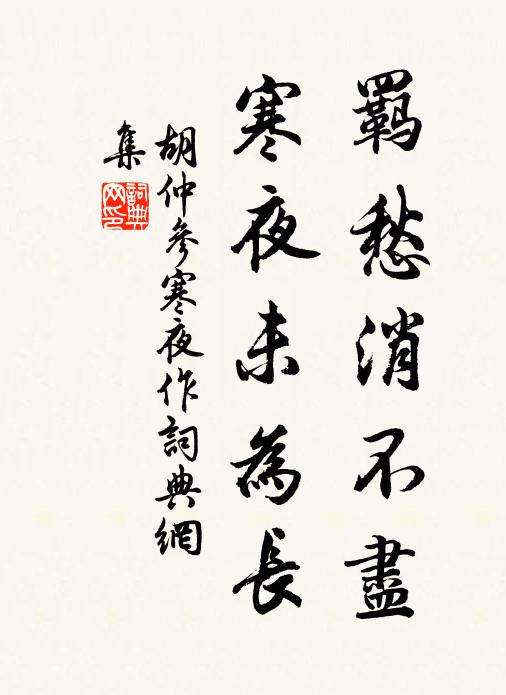 羈愁消不盡
寒夜未為長
胡仲參寒夜作詞典網
集
詞典
网印